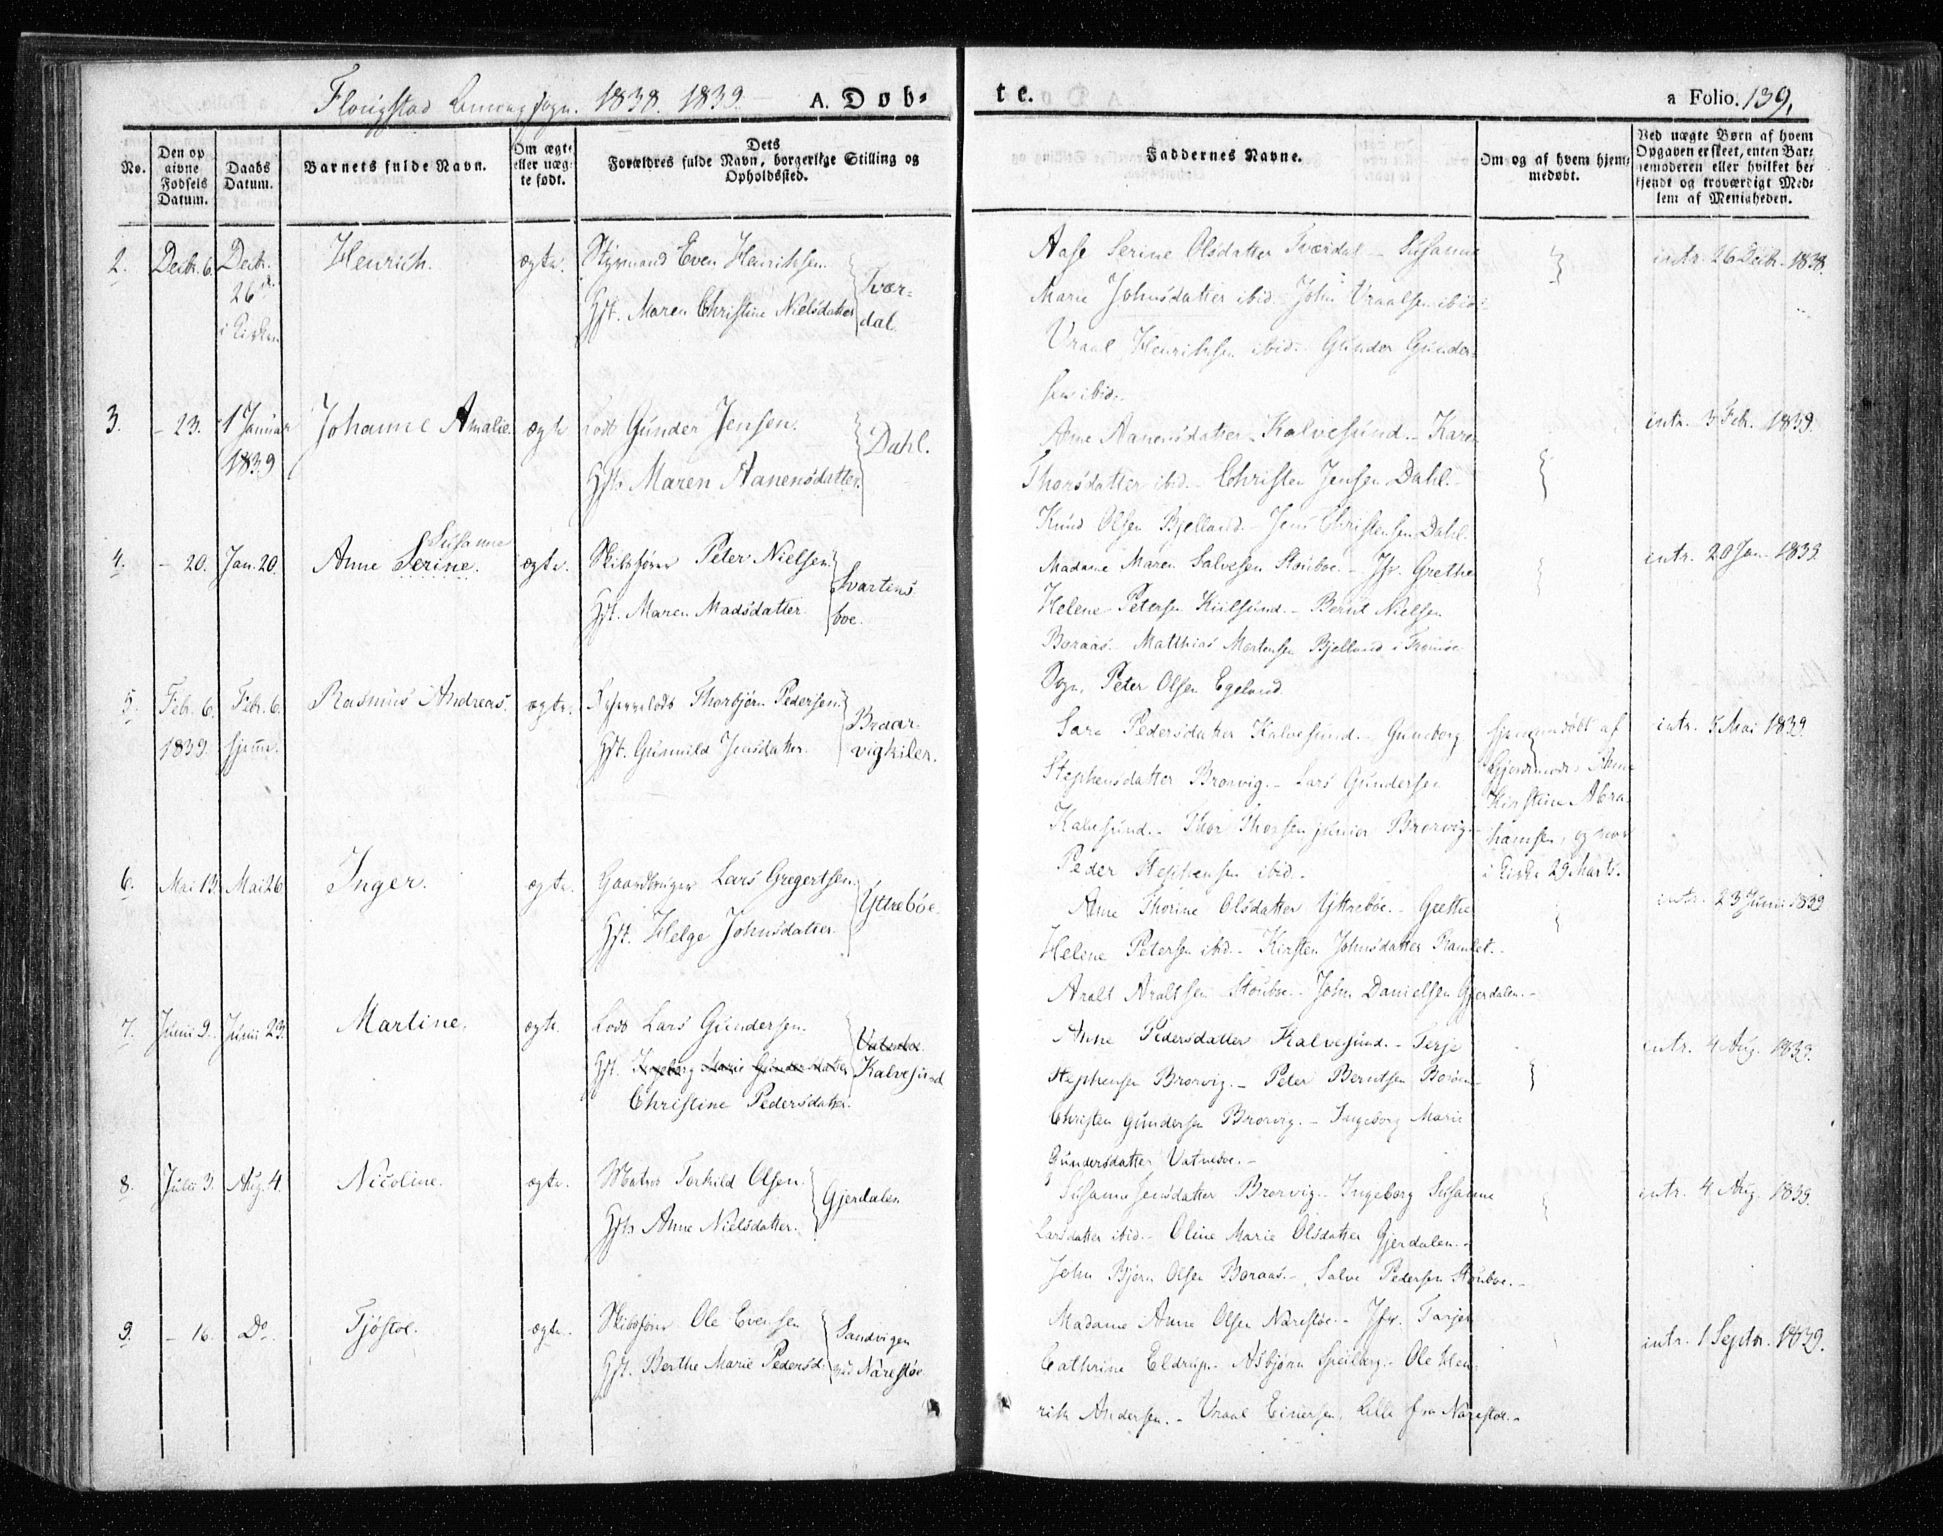 Flougstad Annexsogn. 1838. 1839. A. Døb-
te. a Folio. 139.
No.
Den op
givne
Fødsels
Datum.
Daabs
Datum.
Barnets fulde Navn.
Om ægte
eller uæg-
te født.
Dets
Forældres fulde Navn, borgerlige Stilling og
Opholdssted.
Faddernes Navne.
Om og af hvem hjem-
medøbt.
Ved uægte Børn af hvem
Opgaven er skeet, enten Bar-
nemoderen eller hvilket be-
kjendt og troværdigt Med-
lem af Menigheden.
2. Decbr. 6. Decbr.
26 d.
i Kirken
Henrich. ægte.
Styrmand Even Henrichsen
Hst. Maren Christine Nielsdatter
Tvær-
dal.
Aase Serine Olsdatter Tværdal - Susanne
Marie Johnsdatter ibid. John Vraalsen ibid.
Vraal Henrichsen ibid. - Gunder Gunder-
sen ibid.
intr. 26 Decbr. 1838.
3. - 23. 1 Januar
1839
Johanne Amalie. ægte
Lods Gunder Jensen.
Hst. Maren Aanensdatter.
Dahl.
Anne Aanensdatter Kalvesund. - Karen
Thorsdatter ibid. - Christen Jensen Dahl. -
Knud Olsen Bjelland. - Jens Christensen Dahl.
intr. 3 Feb. 1839.
4. - 20. Jan. 20.
Susanne
Anne Serine. ægte.
Skibsfører Peter Nielsen
Hst. Maren Madsdatter
Svartens
boe.
Madame Maren Salvesen Stouboe. - Jfr. Grethe
Helene Petersen Kiilsund. - Bernt Nielsen
Boraas. - Matthias Mortensen Bjelland i Tromøe
Sogn, Peter Olsen Egeland.
intr. 20 Jan. 1839.
5. Febr. 6.
1839.
Febr. 6.
hjemme.
Rasmus Andreas. ægte.
Thorbjørn Pedersen.
Hst. Gunnild Jensdatter.
Braar-
vigkilen.
Sara Pedersdatter Kalvesund. - Gunneborg
Stephensdatter Brorvig. - Lars Gundersen
Kalvesund. - Thor Thorsen junior Brorvig. -
Peder Stephensen ibid. -
hjemmedøbt af
Gjordmoder Anne
Kirstine Abra-
hamsen, og var
i Kirke 29 Marts.
intr. 5 Mai 1839.
6. Mai 13. Mai 26
Inger. ægte.
Gaardbruger Lars Gregertsen
Hst. Helge Johnsdatter.
Yttrebøe.
Anne Thorine Olsdatter Yttrebøe. - Grethe
Helene Petersen ibid. - Kirsten Johnsdatter Ramlet. -
Aralt Araltsen Stouboe. - John Danielsen Gjerdalen. -
intr. 23 Juni 1839
7. Junii 9. Junii 23.
Martine. ægte.
Lods Lars Gundersen.
Hst. Ingeborg Marie Gundersdatter
Christine Pedersdatter.
Vatneboe.
Kalvesund
Anne Pedersdatter Kalvesund. - Terje
Stephensen Brorvig. - Peter Berntsen Boraas
Christen Gundersen Brorvig. - Ingeborg Marie
Gundersdatter Vatneboe. -
intr. 4 Aug. 1839.
8. Julii 3. Aug. 4.
Nicoline. ægte.
Matros Torkild Olsen
Hst. Anne Nielsdatter.
Gjerdalen
Susanne Jensdatter Brorvig. - Ingeborg Susanne
Larsdatter ibid. - Oline Marie Olsdatter Gjerdalen. -
John Bjørn Olsen Boraas. - Salve Pedersen Stouboe. -
intr. 4 Aug. 1839.
9. - 16. Do.
Tjøstol. ægte.
Skibsfører Ole Evensen
Hst. Berthe Marie Pedersd.
Sandvigen
ved Narestøe
Madame Anne Olsen Narestøe. - Jfr. Tarjer
Cathrine Eldrup. - Asbjørn Speilberg. - Ole Hen-
rik Andersen. - Vraal Einersen, Lille fra Narestøe. -
intr. 1 Septbr. 1839.